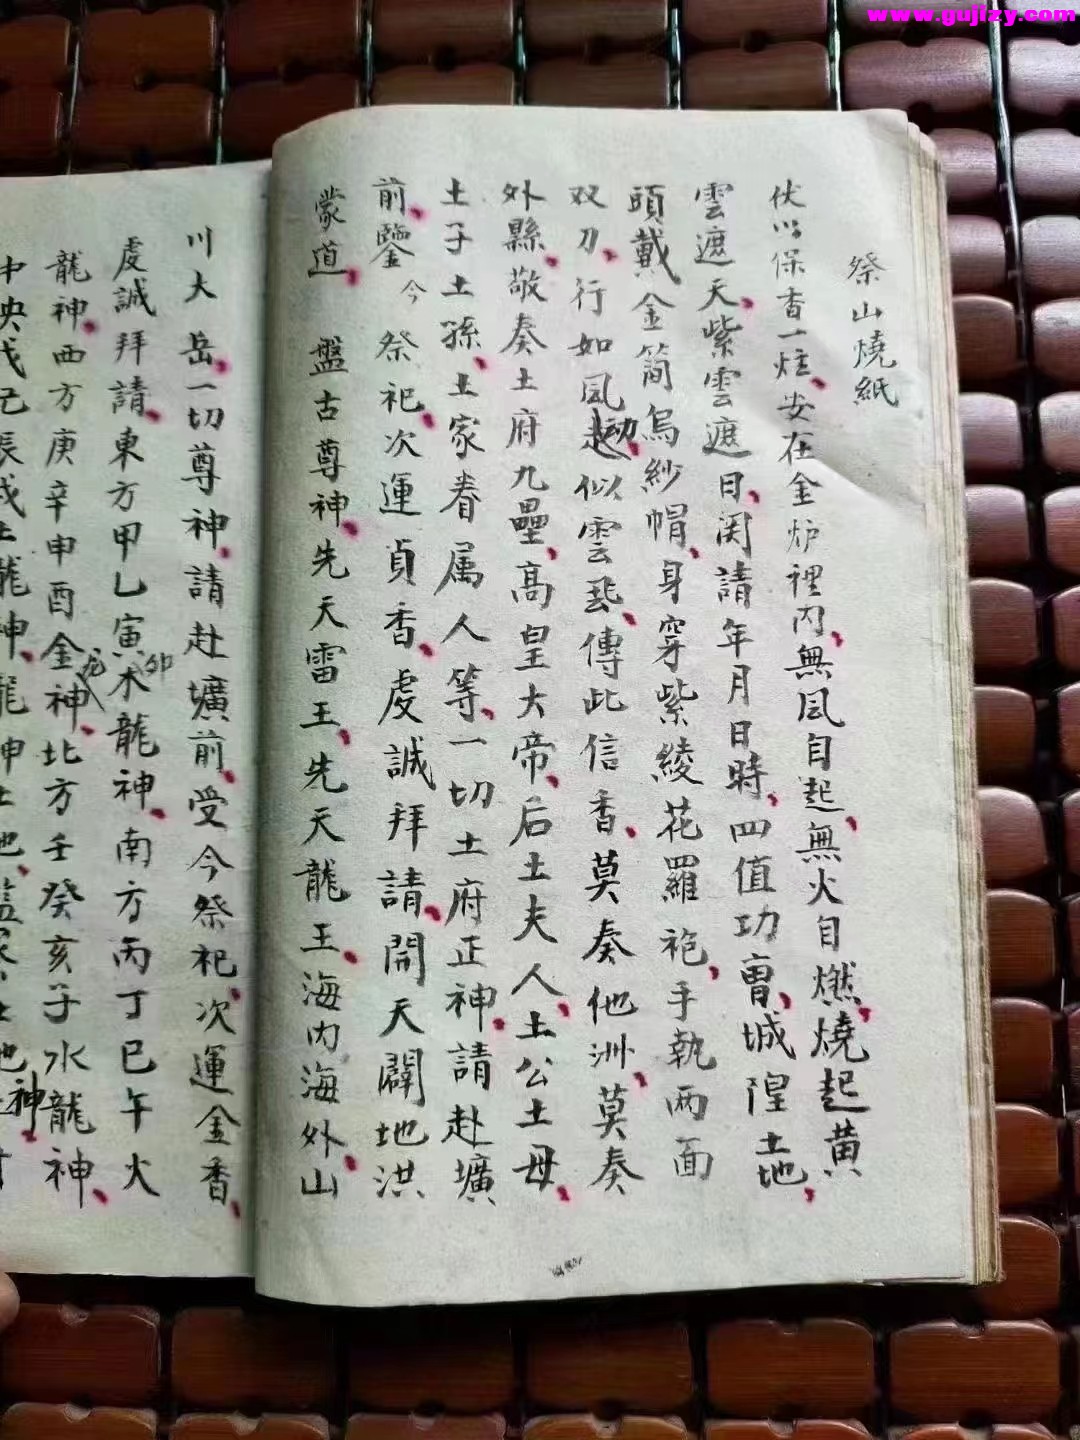 www.gujizy.com
祭山燒紙
伏以保香一炷、安在金炉裡内、無風自起、無火自燃、燒起黄
雲遮天、紫雲遮日、関請年月日時、四值功曹、城隍土地、
頭戴金简烏紗帽、身穿紫綾花羅袍、手執两面
双刀、行如風趣動、似雲飛、傳此信香、莫奏他洲、莫奏
外縣、敬奏土府九壘、高皇大帝、后土夫人、土公土母、
土子土孫、土家眷属人等、一切土府正神、請赴壙
前、鑒今祭祀、次運貞香、虔誠拜請、開天闢地洪
蒙道、盤古尊神、先天雷王、先天龍王、海内海外、山
川大岳、一切尊神、請赴壙前、受今祭祀、次運金香、
虔誠拜請、東方甲乙寅卯木龍神、南方丙丁巳午火
龍神、西方庚辛申酉金龙神、北方壬癸亥子水龍神、
中央戊己辰戌土龍神、龍神土地、